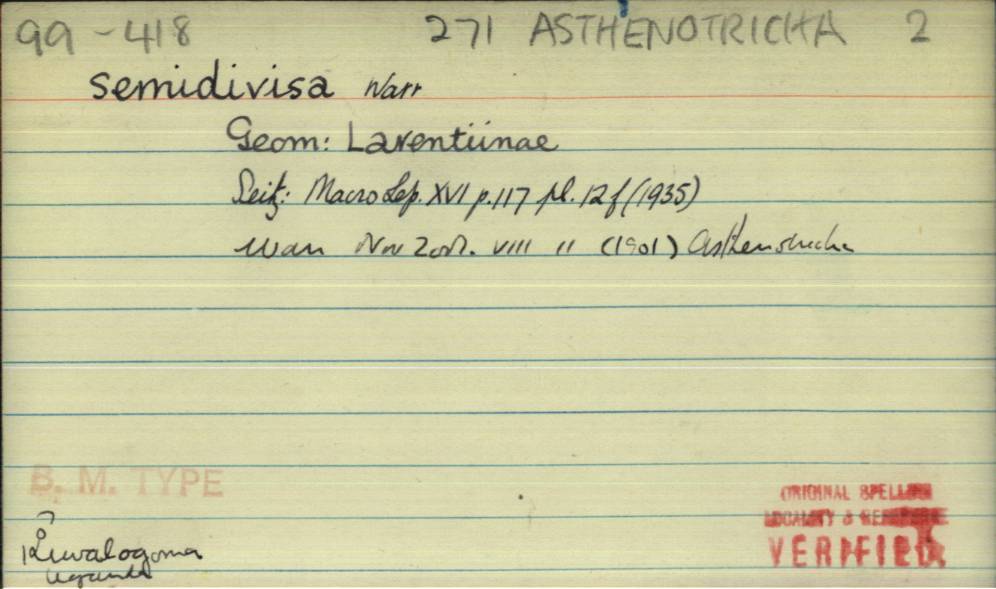 99-418 271 ASTHENOTRICHA 2
semidivisa Warr
Geom: Larentiinae
Seitz: Macro Lep. XVI p.117 pl. 12 f (1935)
Warr Nov Zool. VIII 11 (1901) Asthenotricha
B. M. TYPE
ORIGINAL SPELLING
LOCALITY & REFERENCE
VERIFIED.
Uganda